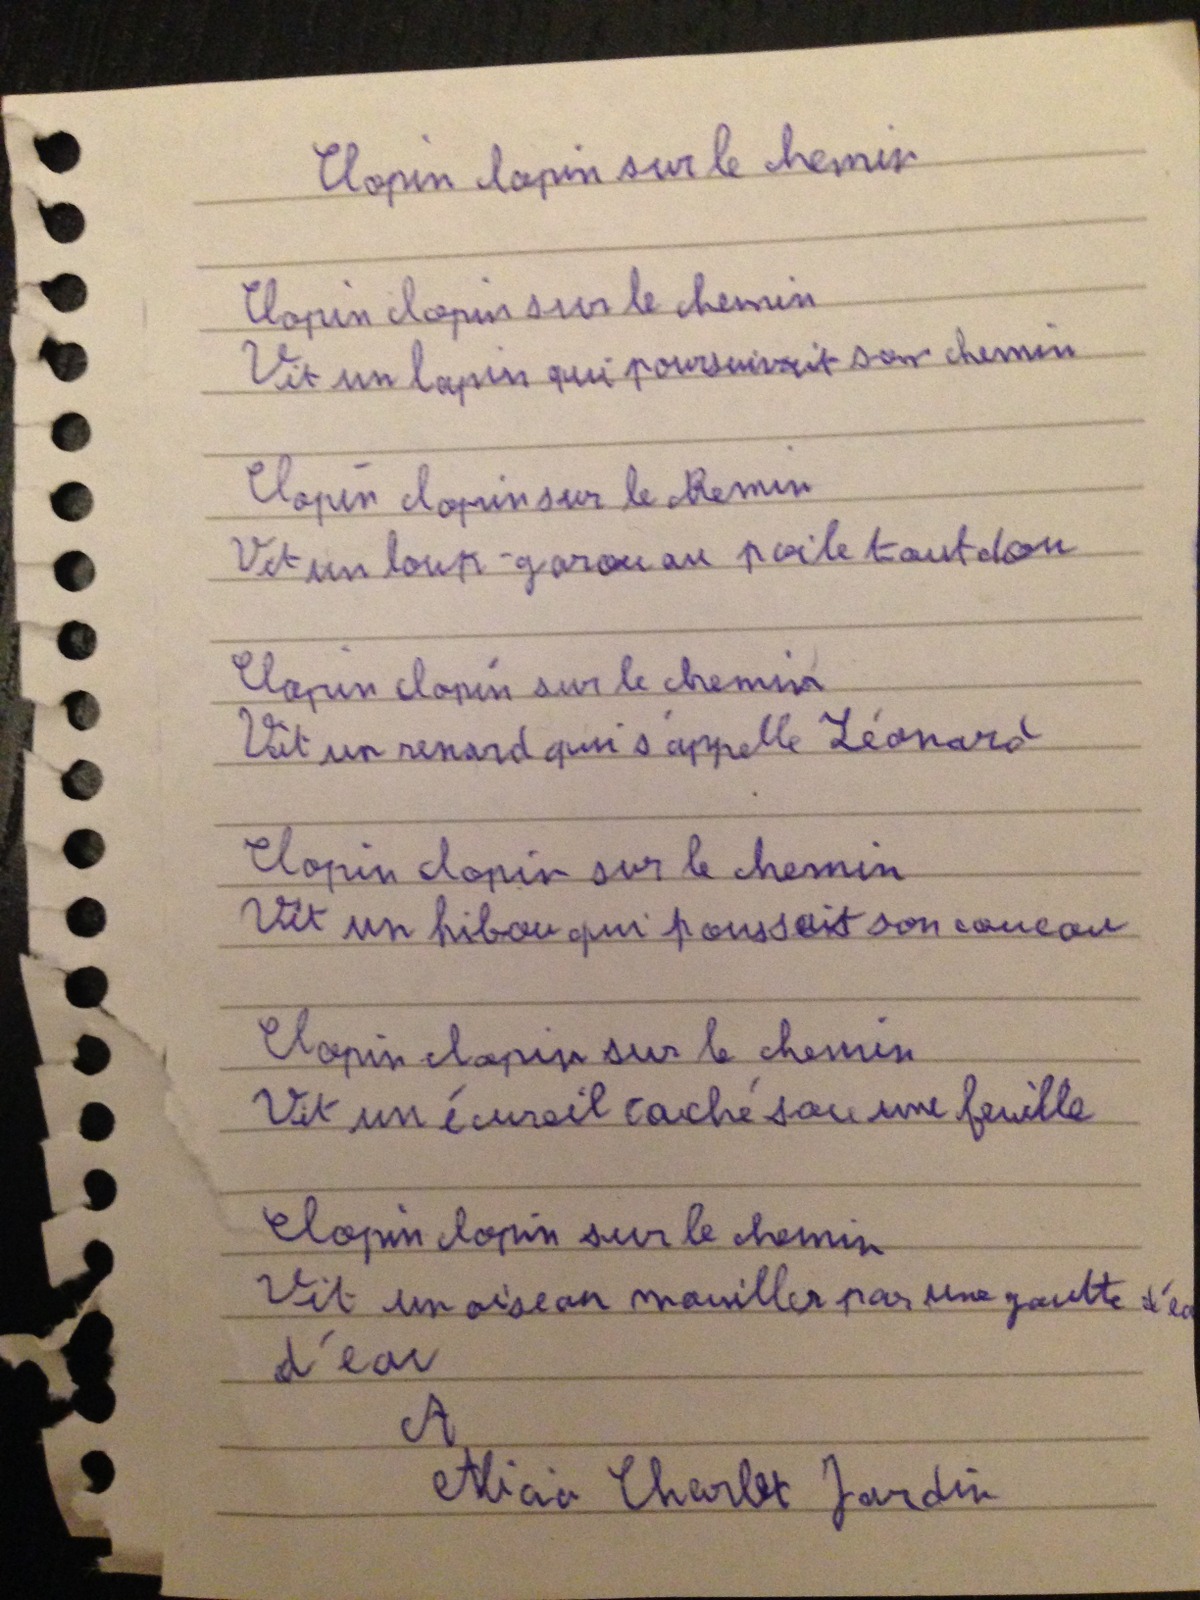 Clopin clopin sur le chemin
Clopin clopin sur le chemin
Vit un lapin qui poursuivait son chemin
Clopin clopin sur le chemin
Vit un loup-garou au poile tout dou
Clopin clopin sur le chemin
Vit un renard qui s'appelle Léonard
Clopin clopin sur le chemin
Vit un hibou qui poussait son coucou
Clopin clopin sur le chemin
Vit un écureil caché sou une feuille
Clopin clopin sur le chemin
Vit un oiseau mouiller par une goutte d'ea
d'eau
A
Alicia Charlet Jardin